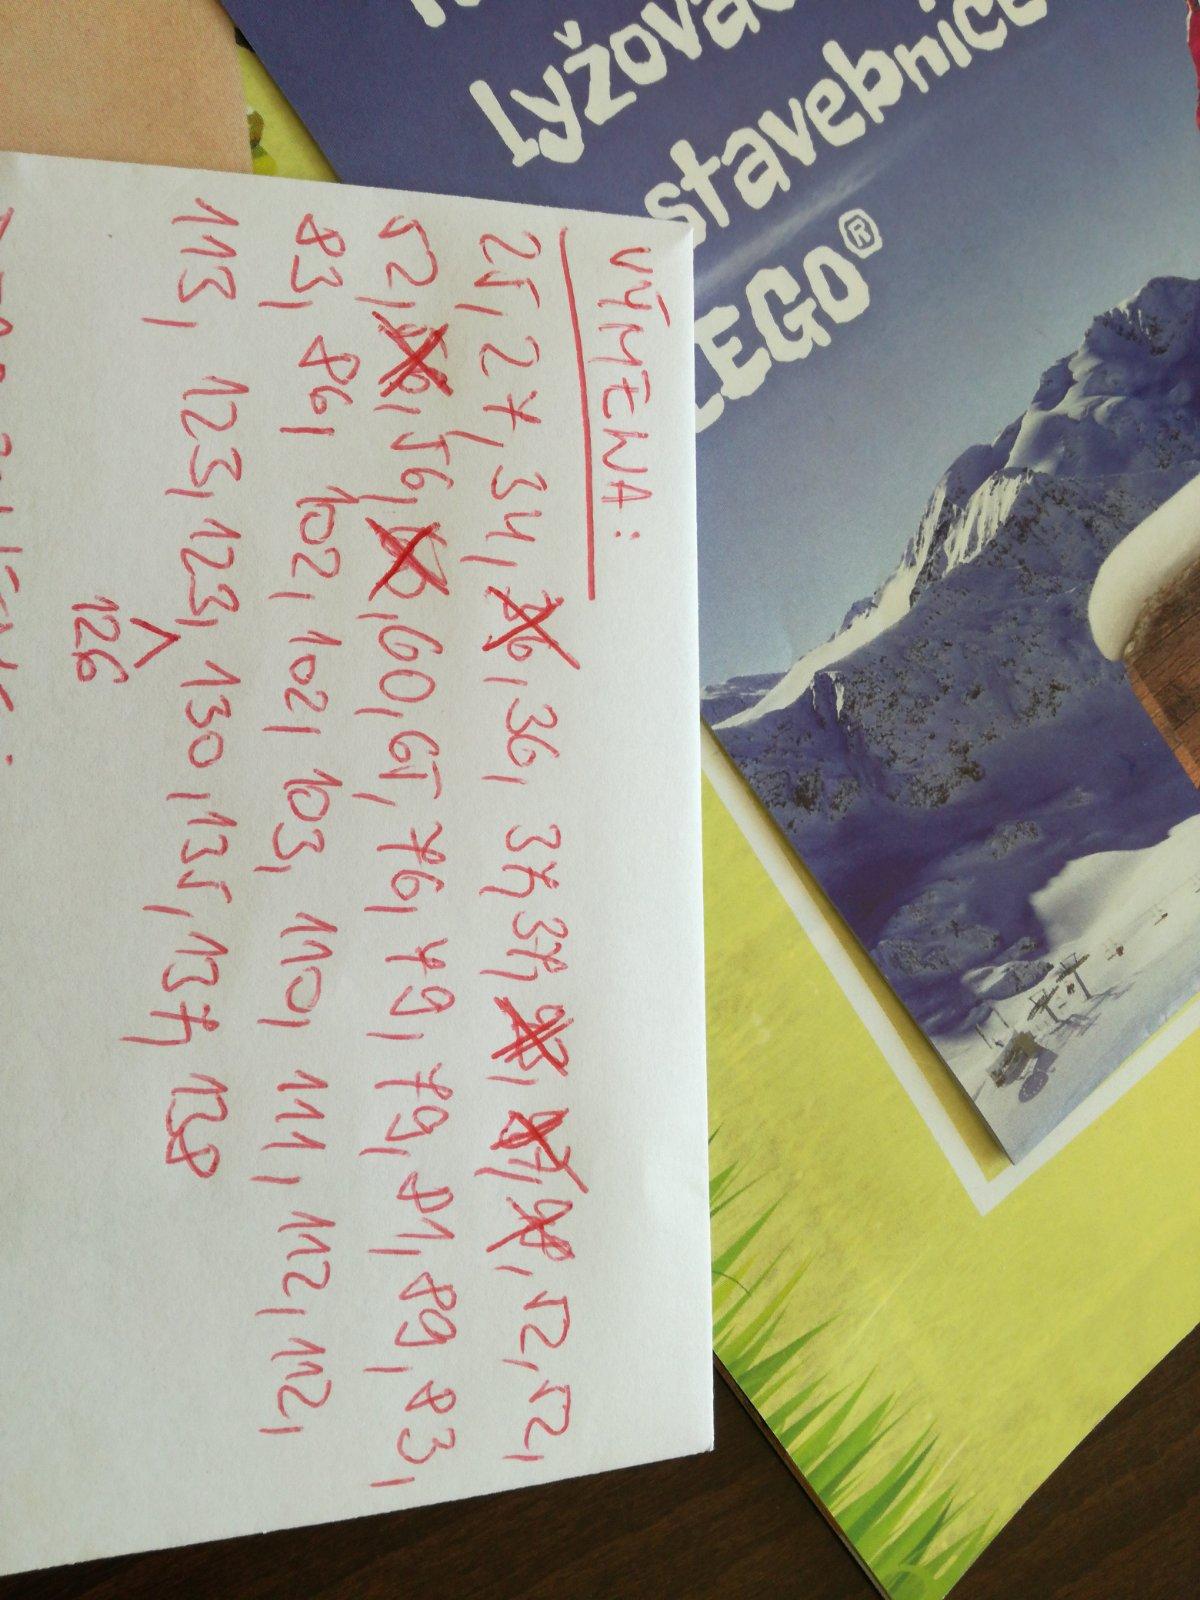 lyžova
stavebnice
LEGO®
VÝMENA:
25, 27, 34, 36, 36, 37, 37, 43, 47, 48, 52, 52,
52, 56, 56, 60, 65, 76, 79, 79, 81, 89, 83,
83, 86, 102, 102, 103, 110, 111, 112, 112,
113, 123, 123, 130, 135, 137, 138
126